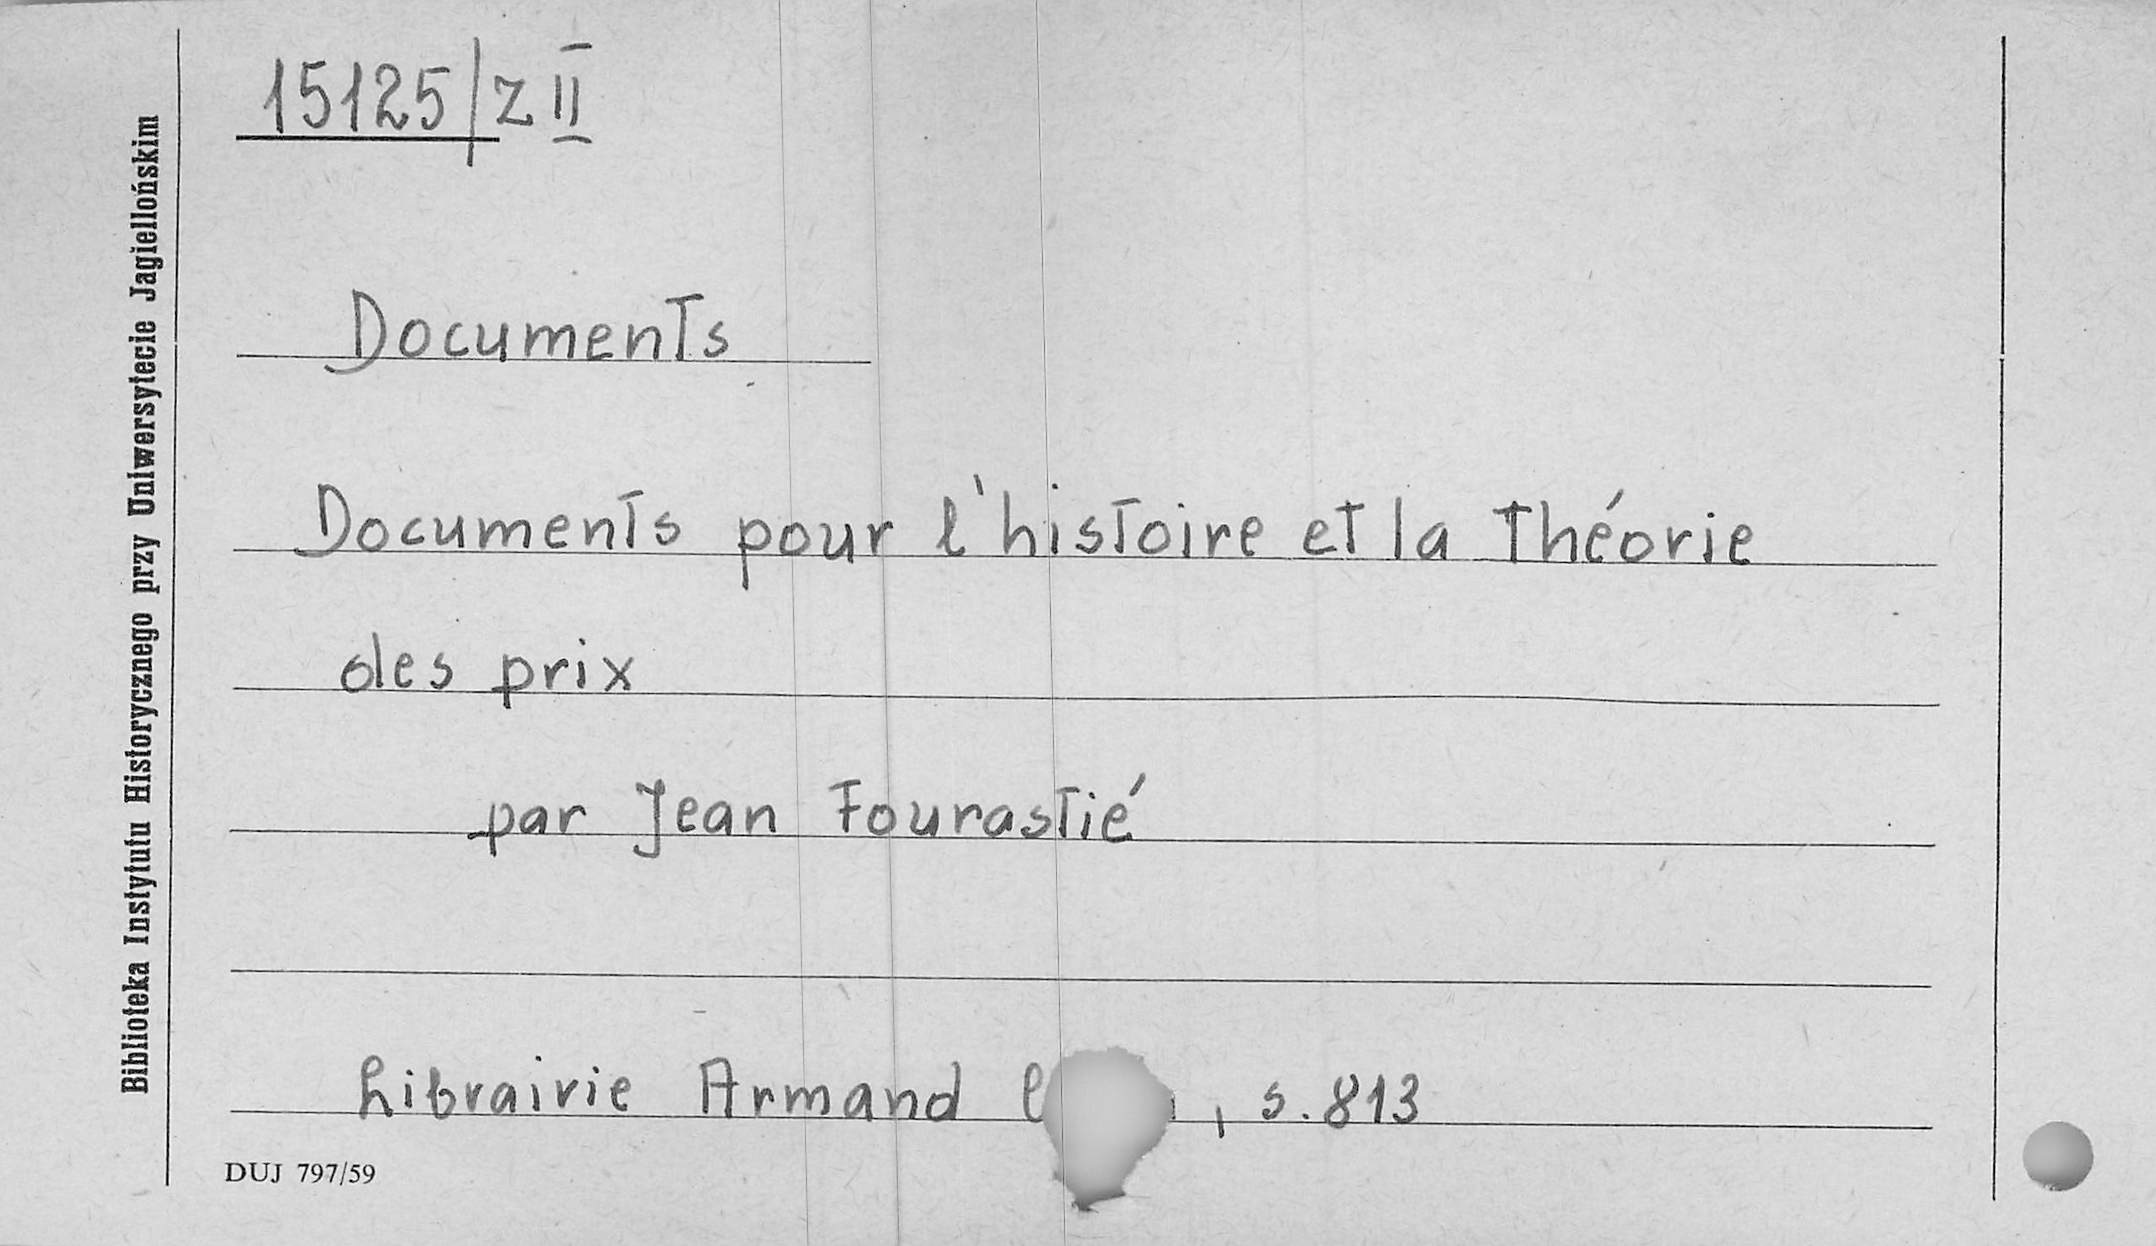 15125/z II
Documents
Documents pour l'histoire et la théorie
des prix
par Jean Fourastié
Librairie Armand , s. 813
DUJ 797/59
Biblioteka Instytutu Historycznego przy Uniwersytecie Jagiellońskim